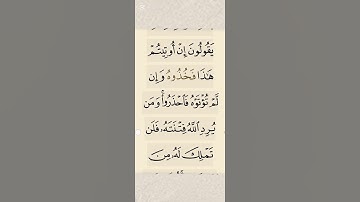 يَقُولُونَ إِنۡ أُوتِيتُمۡ
هَٰذَا فَخُذُوهُ وَإِن
لَّمۡ تُؤۡتَوۡهُ فَٱحۡذَرُواْۚ وَمَن
يُرِدِ ٱللَّهُ فِتۡنَتَهُۥ فَلَن
تَمۡلِكَ لَهُۥ مِنَ